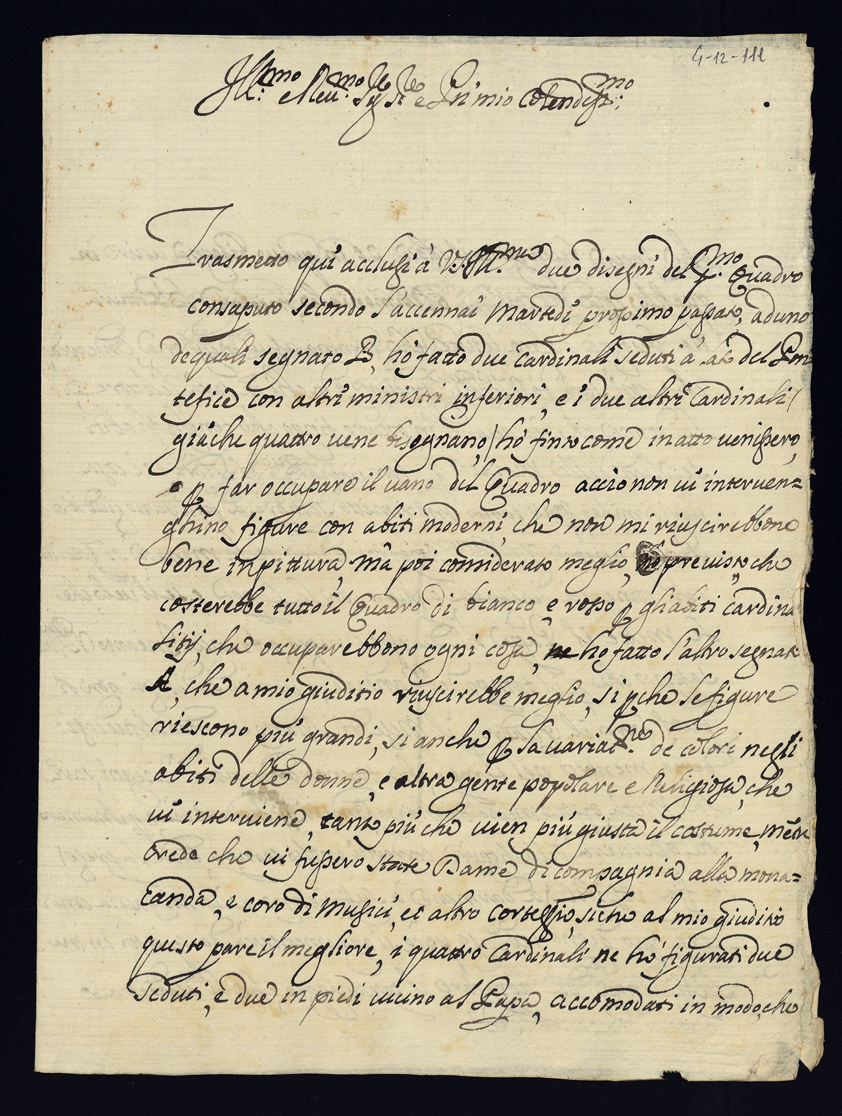 4-12-111
Ill.mo e Reu.mo Sig.r Sig.r e Pn mio Colendis.mo
Trasmetto qui acclusi à V.S. Ill.ma due disegni del P.mo Quadro
consaputo secondo l'accennai Martedì prossimo passato, ad uno
de quali segnato B, hò fatto due Cardinali seduti à lato del Pon
tefice con altri ministri inferiori, e i due altri Cardinali (
giàche quattro uene bisognano) hò finto come in atto uenissero,
p far occupare il uano del Quadro accio non ui interuen=
ghino figure con abiti moderni, che non mi riuscirebbono
bene in pittura, mà poi considerato meglio, hò preuisto, che
costerebbe tutto il Quadro di bianco e rosso p gli abiti Cardina
litij, che occuparebbono ogni cosa, ne hò fatto l'altro segnato
A, che a mio giuditio riuscirebbe meglio, si p che le figure
riescono più grandi, si anche p la uariat.ne de colori negli
abiti delle donne, e altra gente popolare e Religiosa, che
ui interuiene, tanto più che uien più giusta il costume, mentre
credo che ui fussero state Dame di compagnia alla mona=
canda, e coro di Musici, et altro corteggio, siche al mio giuditio
questo pare il megliore, i quattro Cardinali ne hò figurati due
seduti, e due in piedi uicino al Papa, accomodati in modo, che